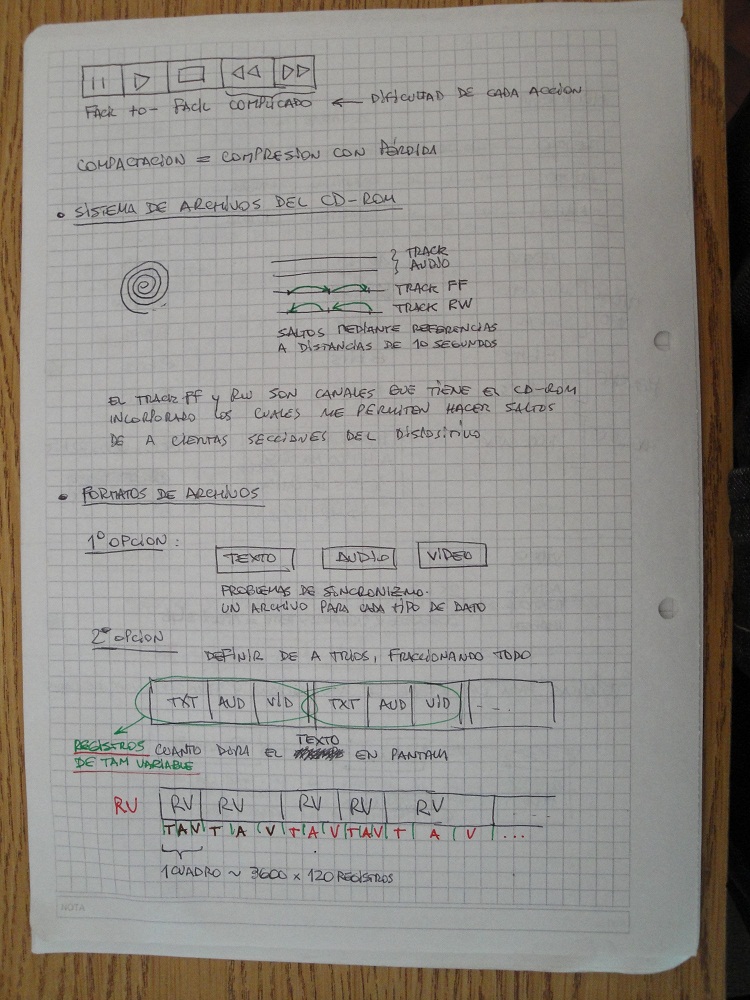 FACIL COMPLICADO ← DIFICULTAD DE CADA ACCION
COMPACTACION = COMPRESION CON PÉRDIDA
• SISTEMA DE ARCHIVOS DEL CD-ROM
TRACK
AUDIO
TRACK FF
TRACK RW
SALTOS MEDIANTE REFERENCIAS
A DISTANCIAS DE 10 SEGUNDOS
EL TRACK FF Y RW SON CANALES QUE TIENE EL CD-ROM
INCORPORADO LOS CUALES ME PERMITEN HACER SALTOS
DE A CIERTAS SECCIONES DEL DISPOSITIVO
• FORMATOS DE ARCHIVOS
1º OPCION:
TEXTO AUDIO VIDEO
PROBLEMAS DE SINCRONIZMO.
UN ARCHIVO PARA CADA TIPO DE DATO
2º OPCION
DEFINIR DE A TRIOS, FRACCIONANDO TODO
TXT AUD VID TXT AUD VID ---
REGISTROS CUANTO DURA EL TEXTO EN PANTALLA
DE TAM VARIABLE
RV RV RV RV RV RV
T A V T A V T A V T A V T A V ...
1 CUADRO ~ 3600 x 120 REGISTROS
NOTA